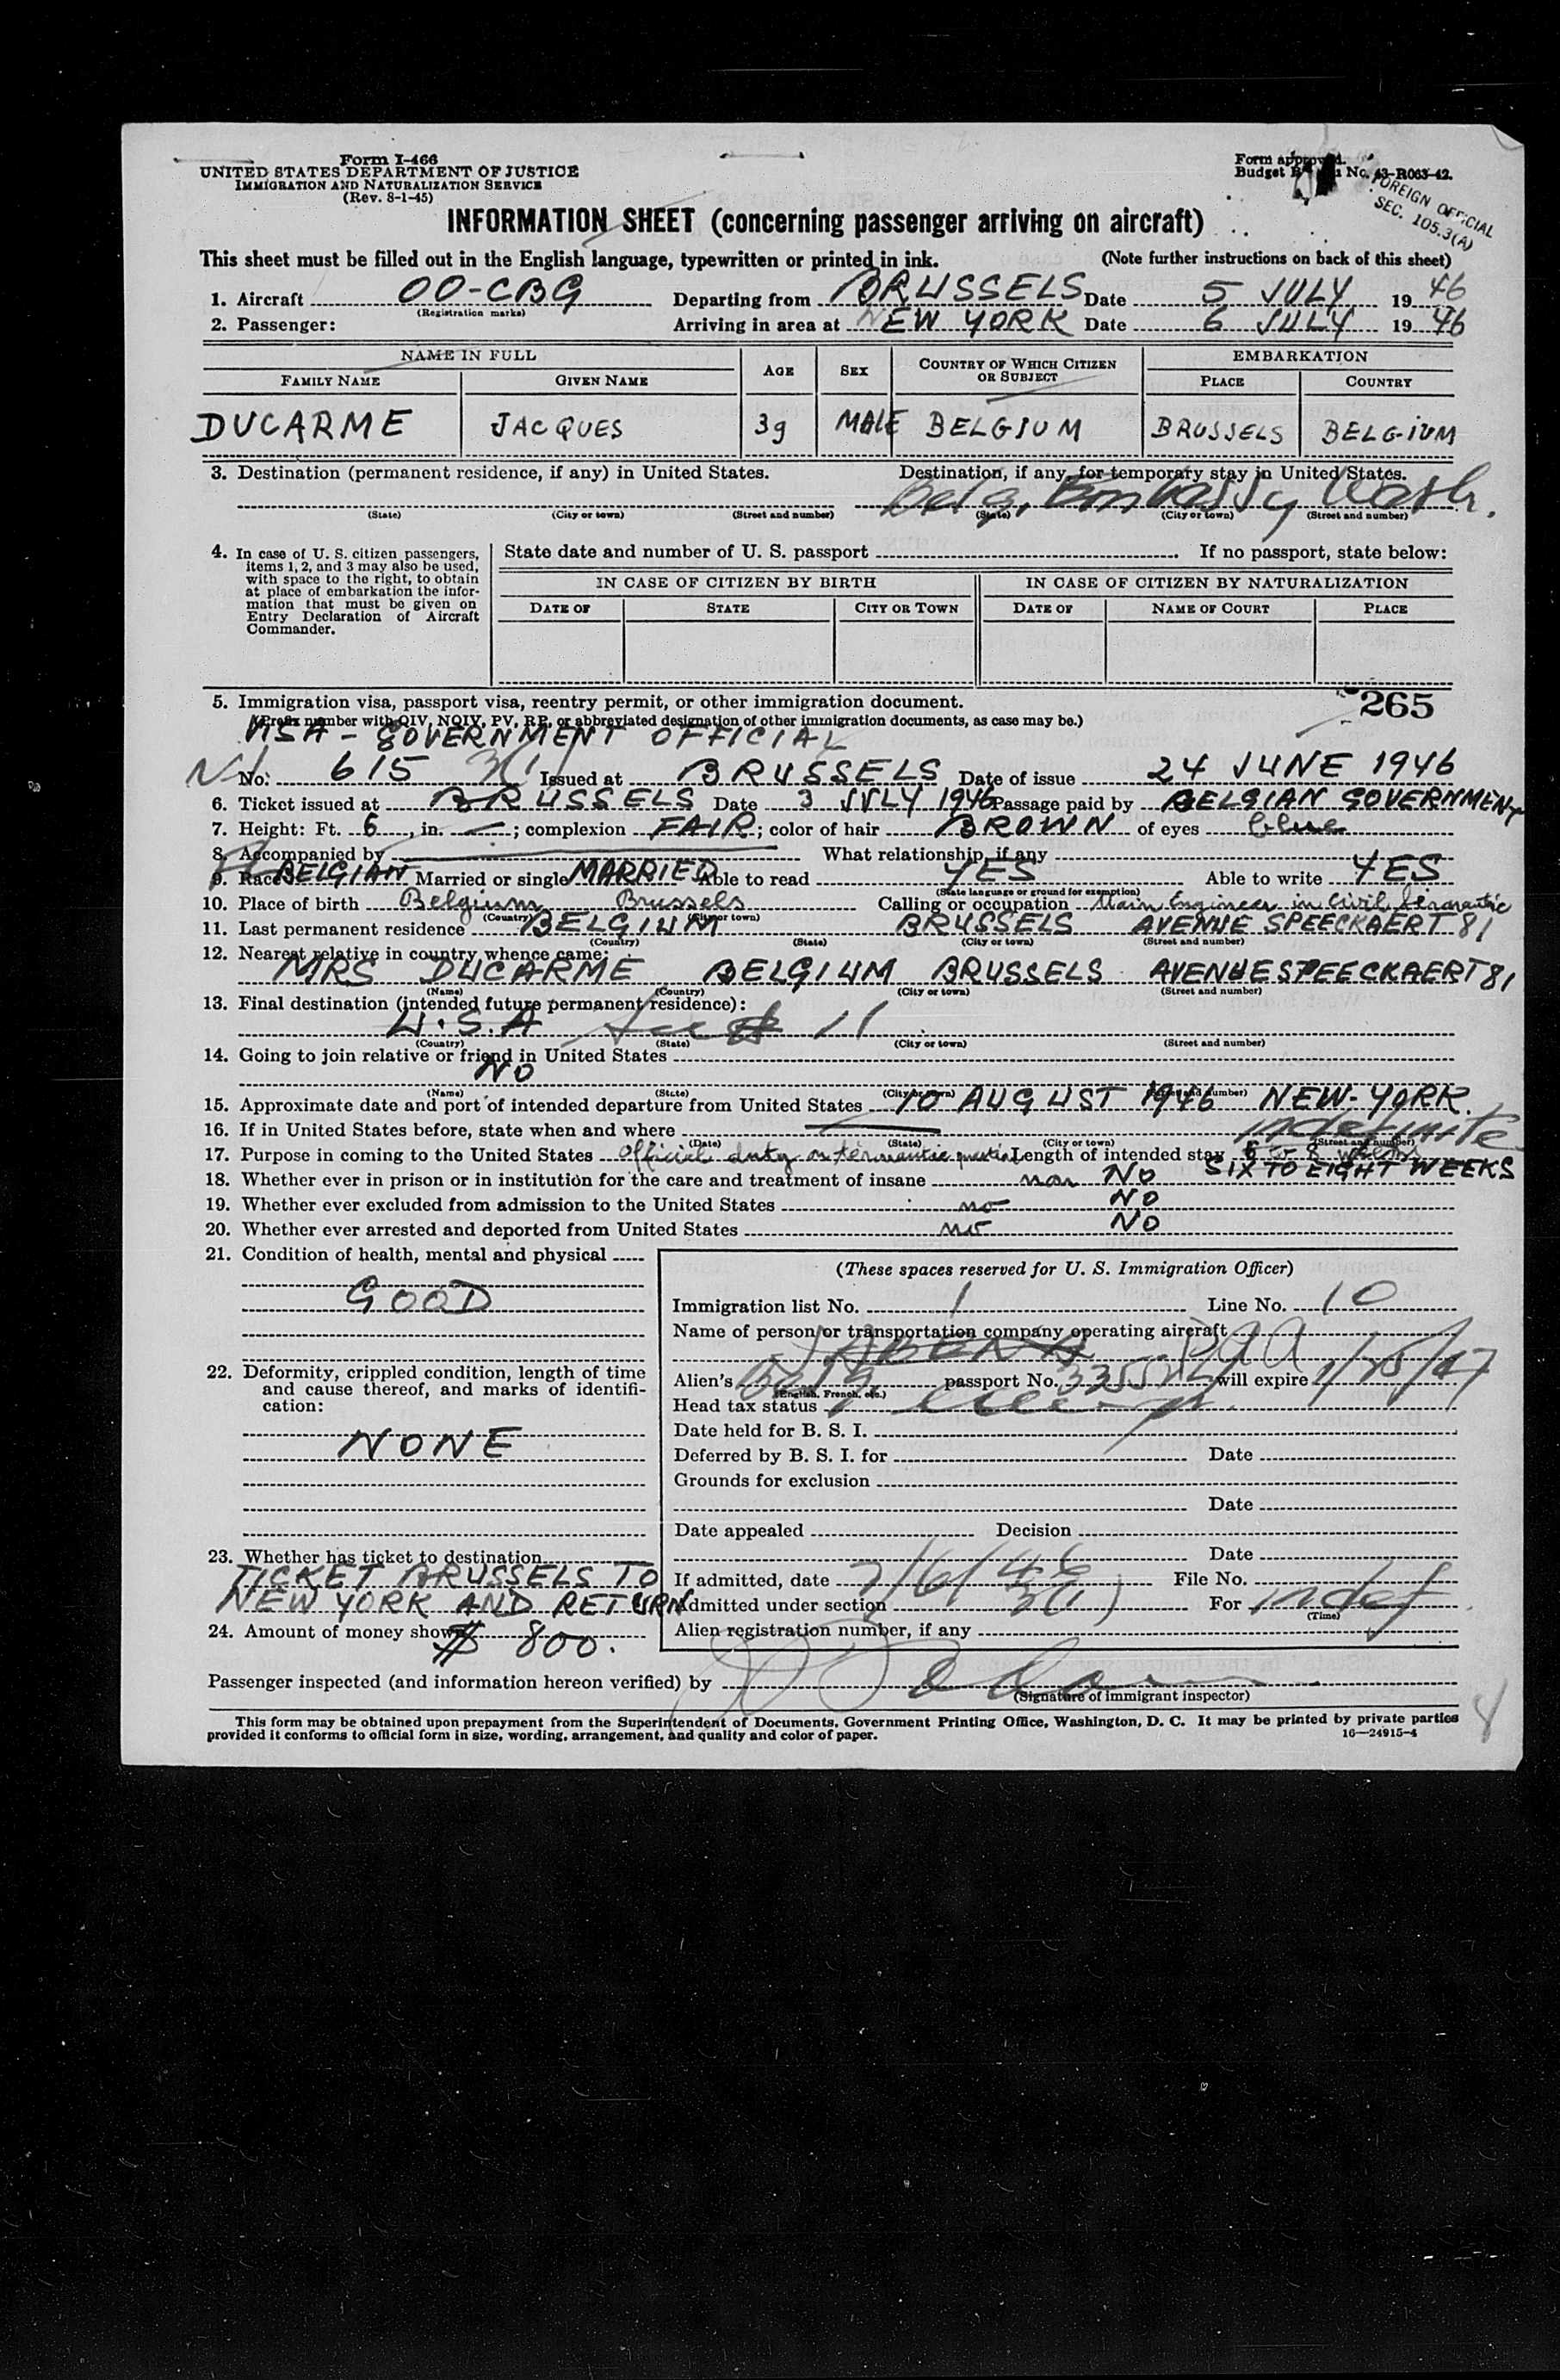 Form I-466
UNITED STATES DEPARTMENT OF JUSTICE
IMMIGRATION AND NATURALIZATION SERVICE
(Rev. 8-1-45)
Form approved.
Budget No. 43-R063-42.
FOREIGN OFFICIAL
SEC. 105.3(A)
INFORMATION SHEET (concerning passenger arriving on aircraft)
This sheet must be filled out in the English language, typewritten or printed in ink. (Note further instructions on back of this sheet)
1. Aircraft OO-CBG Departing from BRUSSELS Date 5 JULY 1946
(Registration marks)
2. Passenger: Arriving in area at NEW YORK Date 6 JULY 1946
NAME IN FULL AGE SEX COUNTRY OF WHICH CITIZEN OR SUBJECT EMBARKATION
FAMILY NAME GIVEN NAME PLACE COUNTRY
DUCARME JACQUES 39 MALE BELGIUM BRUSSELS BELGIUM
3. Destination (permanent residence, if any) in United States. Destination, if any, for temporary stay in United States.
Belg. Embassy Wash.
(State) (City or town) (Street and number) (State) (City or town) (Street and number)
4. In case of U. S. citizen passengers, items 1, 2, and 3 may also be used, with space to the right, to obtain at place of embarkation the information that must be given on Entry Declaration of Aircraft Commander.
State date and number of U. S. passport If no passport, state below:
IN CASE OF CITIZEN BY BIRTH IN CASE OF CITIZEN BY NATURALIZATION
DATE OF STATE CITY OR TOWN DATE OF NAME OF COURT PLACE
5. Immigration visa, passport visa, reentry permit, or other immigration document. 265
(Prefix number with QIV, NQIV, PV, RP, or abbreviated designation of other immigration documents, as case may be.)
VISA - GOVERNMENT OFFICIAL
No. 615 3(1) Issued at BRUSSELS Date of issue 24 JUNE 1946
6. Ticket issued at BRUSSELS Date 3 JULY 1946 Passage paid by BELGIAN GOVERNMENT
7. Height: Ft. 6, in. —; complexion FAIR; color of hair BROWN of eyes blue
8. Accompanied by What relationship, if any
9. Race BELGIAN Married or single MARRIED Able to read YES Able to write YES
(State language or ground for exemption)
10. Place of birth Belgium Brussels Calling or occupation Main Engineer in Civil
(Country) (City or town)
11. Last permanent residence BELGIUM BRUSSELS AVENUE SPEECKAERT 81
(Country) (State) (City or town) (Street and number)
12. Nearest relative in country whence came:
MRS DUCARME BELGIUM BRUSSELS AVENUE SPEECKAERT 81
(Name) (Country) (City or town) (Street and number)
13. Final destination (intended future permanent residence):
U.S.A 11
(Country) (State) (City or town) (Street and number)
14. Going to join relative or friend in United States
NO
(Name) (State) (City or town) (Street and number)
15. Approximate date and port of intended departure from United States 10 AUGUST 1946 NEW-YORK.
16. If in United States before, state when and where indefinite
(Date) (State) (City or town) (Street and number)
17. Purpose in coming to the United States Official duty Length of intended stay 6 to 8 weeks
SIX TO EIGHT WEEKS
18. Whether ever in prison or in institution for the care and treatment of insane NO
19. Whether ever excluded from admission to the United States no NO
20. Whether ever arrested and deported from United States no NO
21. Condition of health, mental and physical
GOOD
22. Deformity, crippled condition, length of time and cause thereof, and marks of identification:
NONE
23. Whether has ticket to destination
TICKET BRUSSELS TO
NEW YORK AND RETURN
24. Amount of money shown $ 800.
(These spaces reserved for U. S. Immigration Officer)
Immigration list No. 1 Line No. 10
Name of person or transportation company operating aircraft
SABENA PAA
Alien's Belg passport No. will expire
(English, French, etc.)
Head tax status
Date held for B. S. I.
Deferred by B. S. I. for Date
Grounds for exclusion
Date
Date appealed Decision
Date
If admitted, date 7/6/46 File No.
Admitted under section 3(1) For indef
(Time)
Alien registration number, if any
Passenger inspected (and information hereon verified) by
(Signature of immigrant inspector)
This form may be obtained upon prepayment from the Superintendent of Documents, Government Printing Office, Washington, D. C. It may be printed by private parties
provided it conforms to official form in size, wording, arrangement, and quality and color of paper. 16—24915-4